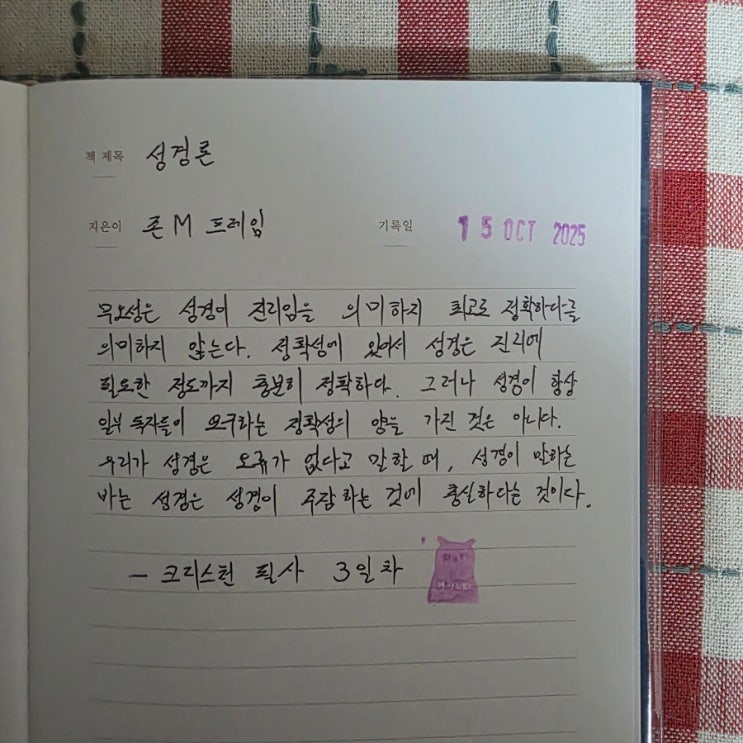 책 제목 성경론
지은이 존 M 프레임 기록일 15 OCT 2025
무오성은 성경이 진리임을 의미하지 최고로 정확하다를
의미하지 않는다. 정확성에 있어서 성경은 진리에
필요한 정도까지 충분히 정확하다. 그러나 성경이 항상
일부 독자들이 요구하는 정확성의 양을 가진 것은 아니다.
우리가 성경은 오류가 없다고 말할 때, 성경이 말하는
바는 성경은 성경이 주장하는 것에 충실하다는 것이다.
- 크리스천 필사 3일차